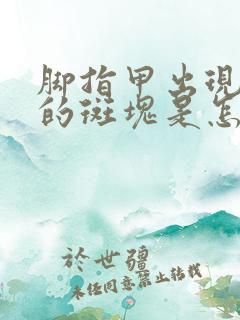 脚指甲出现
的斑块是怎
於世疆
未经同意禁止转载